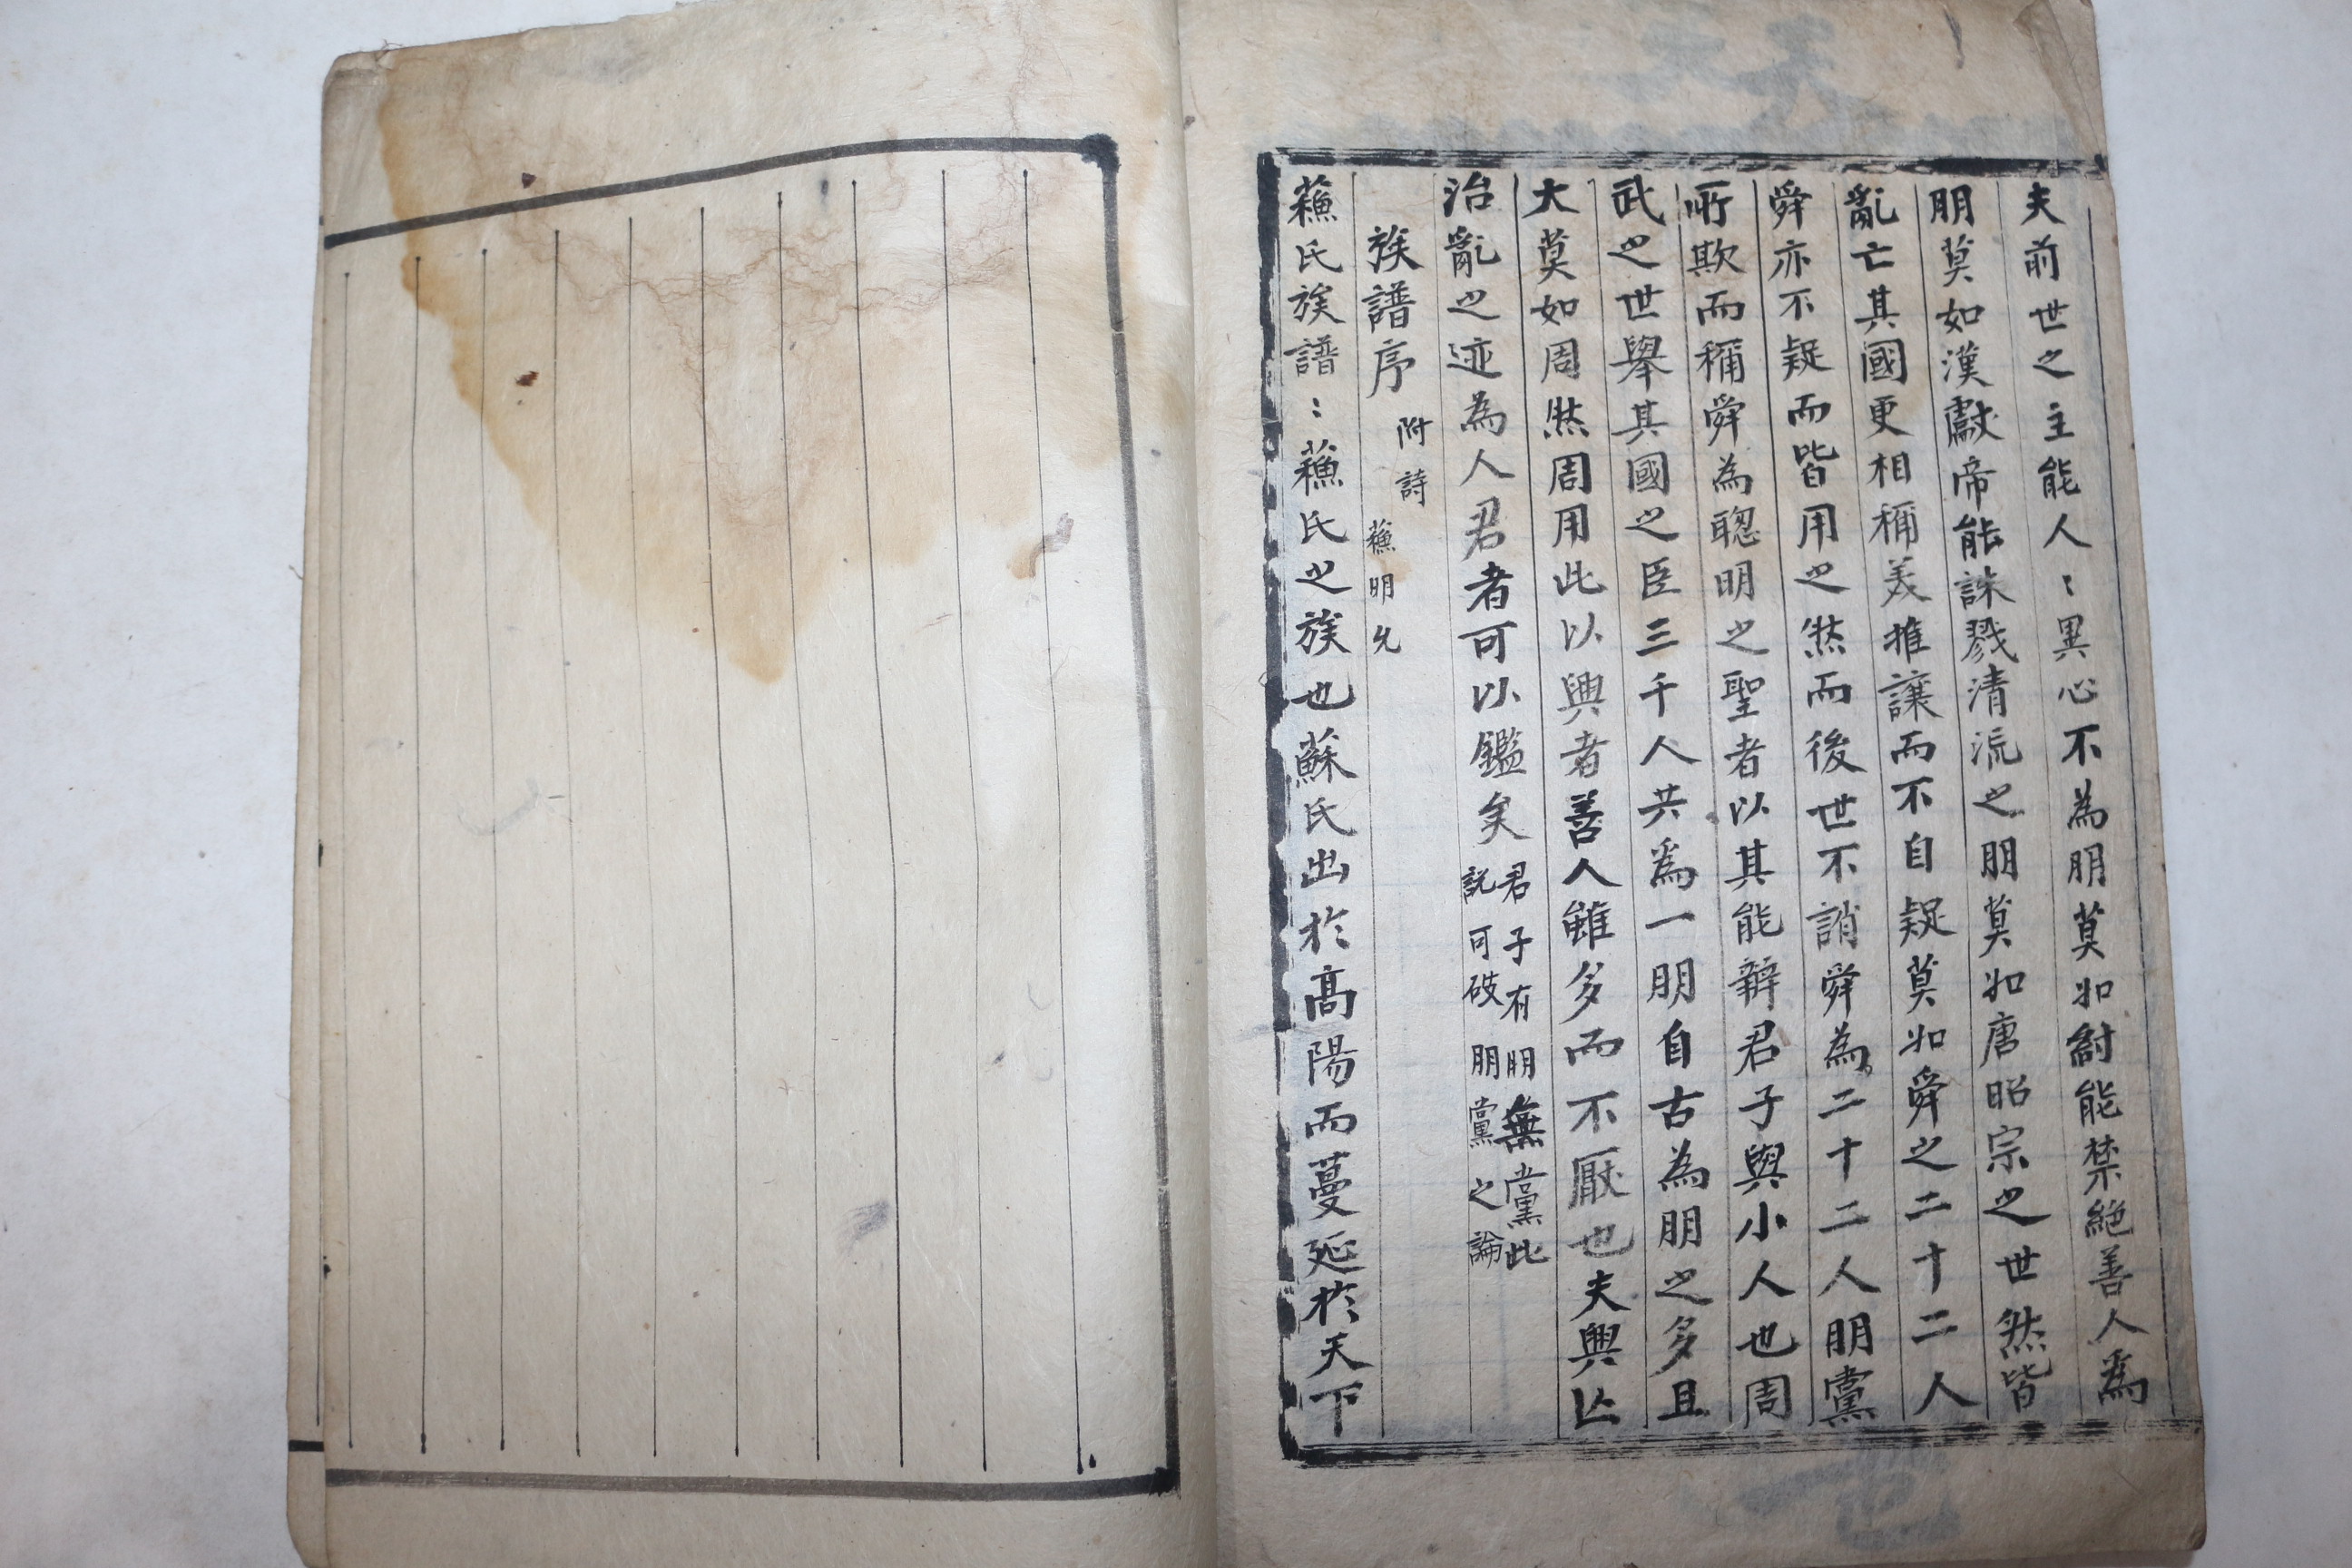 夫前世之主能人〻異心不為朋莫如紂能禁絶善人為
朋莫如漢獻帝能誅戮清流之朋莫如唐昭宗之世然皆
亂亡其國更相稱美推讓而不自疑莫如舜之二十二人
舜亦不疑而皆用之然而後世不誚舜為二十二人朋黨
所欺而稱舜為聰明之聖者以其能辨君子與小人也周
武之世舉其國之臣三千人共為一朋自古為朋之多且
大莫如周然周用此以興者善人雖多而不厭也夫興亡
治亂之迹為人君者可以鑑矣
君子有朋無黨此
説可破朋黨之論
族譜序
附詩
蘓明允
蘓氏族譜〻蘓氏之族也蘇氏出於髙陽而蔓延於天下